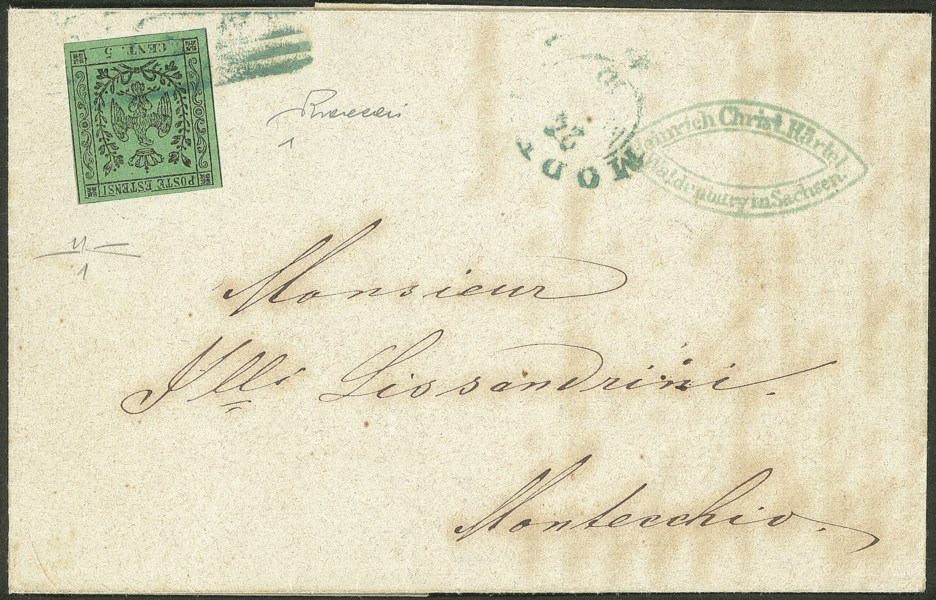 CENT. 5
POSTE ESTENSI
MOD
22
Heinrich Christ. Härtel
Waldenburg in Sachsen.
1
1
Monsieur
Flli Lissandrini.
Montecchio.